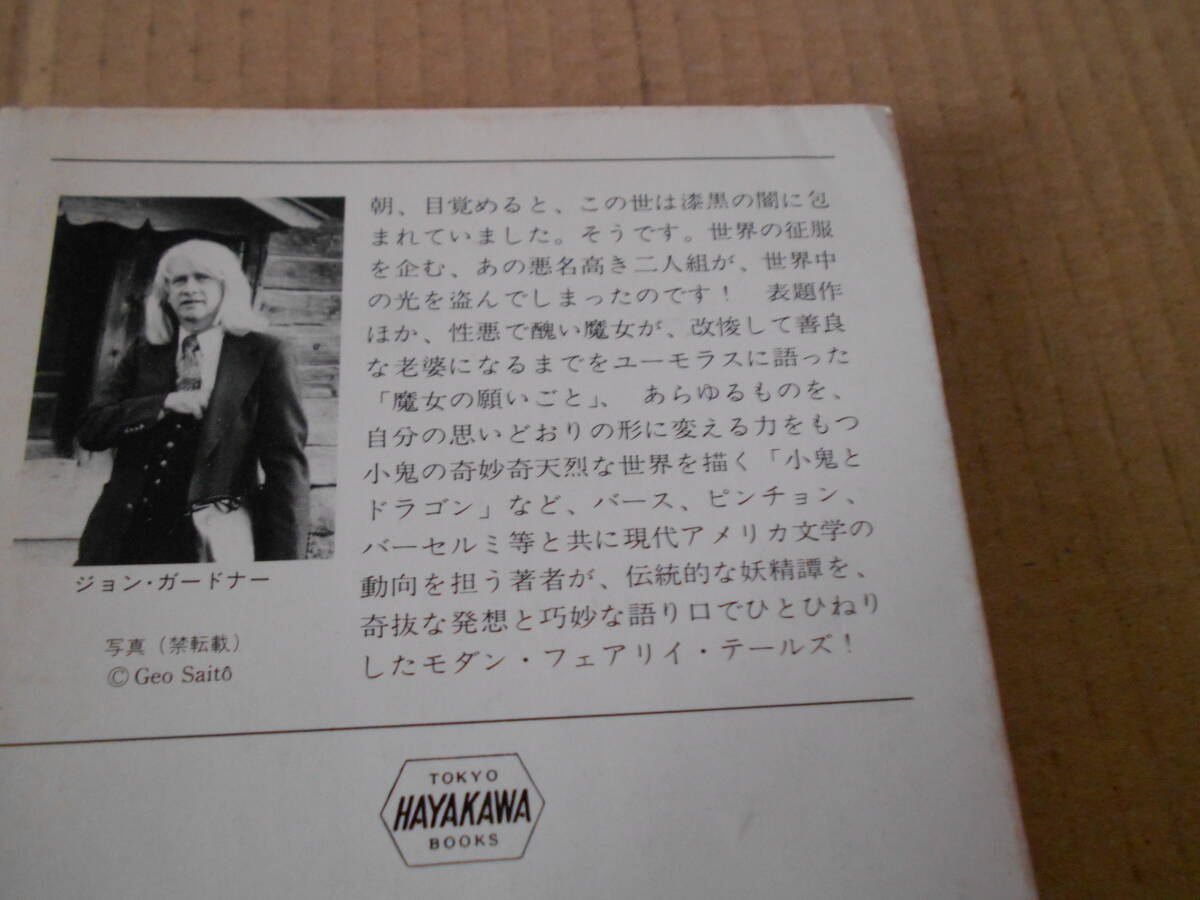 朝、目覚めると、この世は漆黒の闇に包
まれていました。そうです。世界の征服
を企む、あの悪名高き二人組が、世界中
の光を盗んでしまったのです! 表題作
ほか、性悪で醜い魔女が、改悛して善良
な老婆になるまでをユーモラスに語った
「魔女の願いごと」、 あらゆるものを、
自分の思いどおりの形に変える力をもつ
小鬼の奇妙奇天烈な世界を描く「小鬼と
ドラゴン」など、バース、ピンチョン、
バーセルミ等と共に現代アメリカ文学の
動向を担う著者が、伝統的な妖精譚を、
奇抜な発想と巧妙な語り口でひとひねり
したモダン・フェアリイ・テールズ!
ジョン・ガードナー
写真(禁転載)
© Geo Saitô
TOKYO
HAYAKAWA
BOOKS